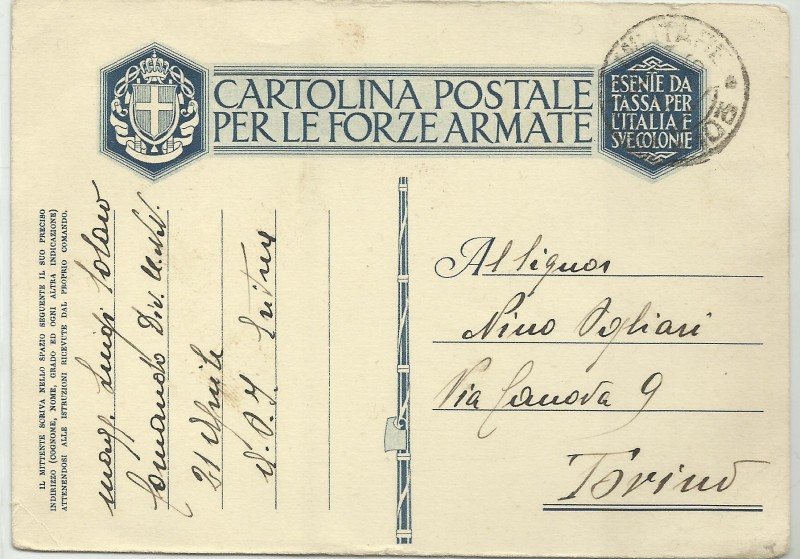 CARTOLINA POSTALE
PER LE FORZE ARMATE
ESENTE DA
TASSA PER
L'ITALIA E
SVE COLONIE
MILITARE
IL MITTENTE SCRIVA NELLO SPAZIO SEGUENTE IL SUO PRECISO
INDIRIZZO (COGNOME, NOME, GRADO ED OGNI ALTRA INDICAZIONE)
ATTENENDOSI ALLE ISTRUZIONI RICEVUTE DAL PROPRIO COMANDO.
Magg. Luigi Solaro
Comando Div.
21 Aprile
Al Signor
Nino
Via Canova 9
Torino